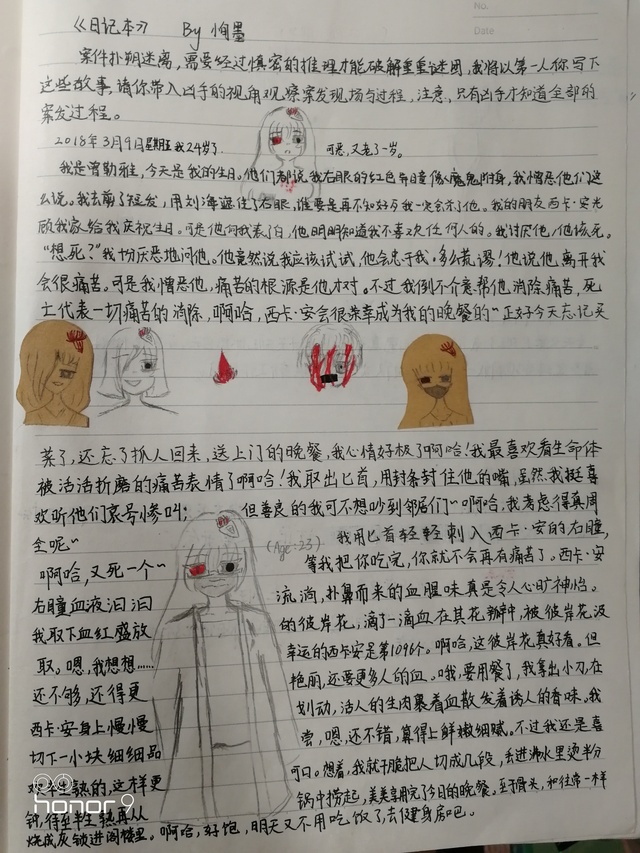 No.
Date
《日记本》 By 恂墨
案件扑朔迷离，需要经过慎密的推理才能破解重重谜团，我将以第一人你写下
这些故事，请你带入凶手的视角观察案发现场与过程，注意，只有凶手才知道全部的
案发过程。
2018年3月9日星期五 我24岁了. 可恶，又老了一岁。
我是曾勒雅，今天是我的生日。他们都说我右眼的红色异瞳像魔鬼附身，我憎恶他们这
么说。我去剪了短发，用刘海遮住了右眼，谁要是再不知好歹我一定杀了他。我的朋友西卡·安光
顾我家给我庆祝生日。可是他向我表了白，他明明知道我不喜欢任何人的。我讨厌他，他该死。
“想死？”我十分厌恶地问他。他竟然说我应该试试，他会忠于我。多么荒谬！他说他离开我
会很痛苦。可是我憎恶他，痛苦的根源是他才对。不过我倒不介意帮他消除痛苦，死
亡代表一切痛苦的消除，啊哈，西卡·安会很荣幸成为我的晚餐的~正好今天忘记买
菜了，还忘了抓人回来，送上门的晚餐，我心情好极了啊哈！我最喜欢看生命体
被活活折磨的痛苦表情了啊哈！我取出匕首，用封条封住他的嘴，虽然我挺喜
欢听他们哀号惨叫； 但善良的我可不想吵到邻居们~啊哈，我考虑得真周
全呢~ (Age:23) 我用匕首轻轻刺入西卡·安的右瞳，
等我把你吃完，你就不会再有痛苦了。西卡·安
啊哈，又死一个~
右瞳血液汩汩 流淌，扑鼻而来的血腥味真是令人心旷神怡。
我取下血红盛放 的彼岸花，滴了一滴血在其花瓣中，被彼岸花汲
取。嗯，我想想…… 幸运的西卡安是第1096个。啊哈，这彼岸花真好看。但
还不够，还得更 艳丽，还要更多人的血。哦，要用餐了，我拿出小刀，在
西卡·安身上慢慢 划动，活人的生肉裹着血散发着诱人的香味。我
切下一小块细细品 尝，嗯，还不错，真得上鲜嫩细腻。不过我还是喜
欢半生熟的，这样更 可口。想着，我就干脆把人切成几段，丢进沸水里烫半分
钟，待至半生熟再从 锅中捞起，美美享用完了今日的晚餐。至于骨头，和往常一样
烧成灰锁进阁楼里。啊哈，好饱，明天又不用吃饭了，去健身房吧。
honor 9